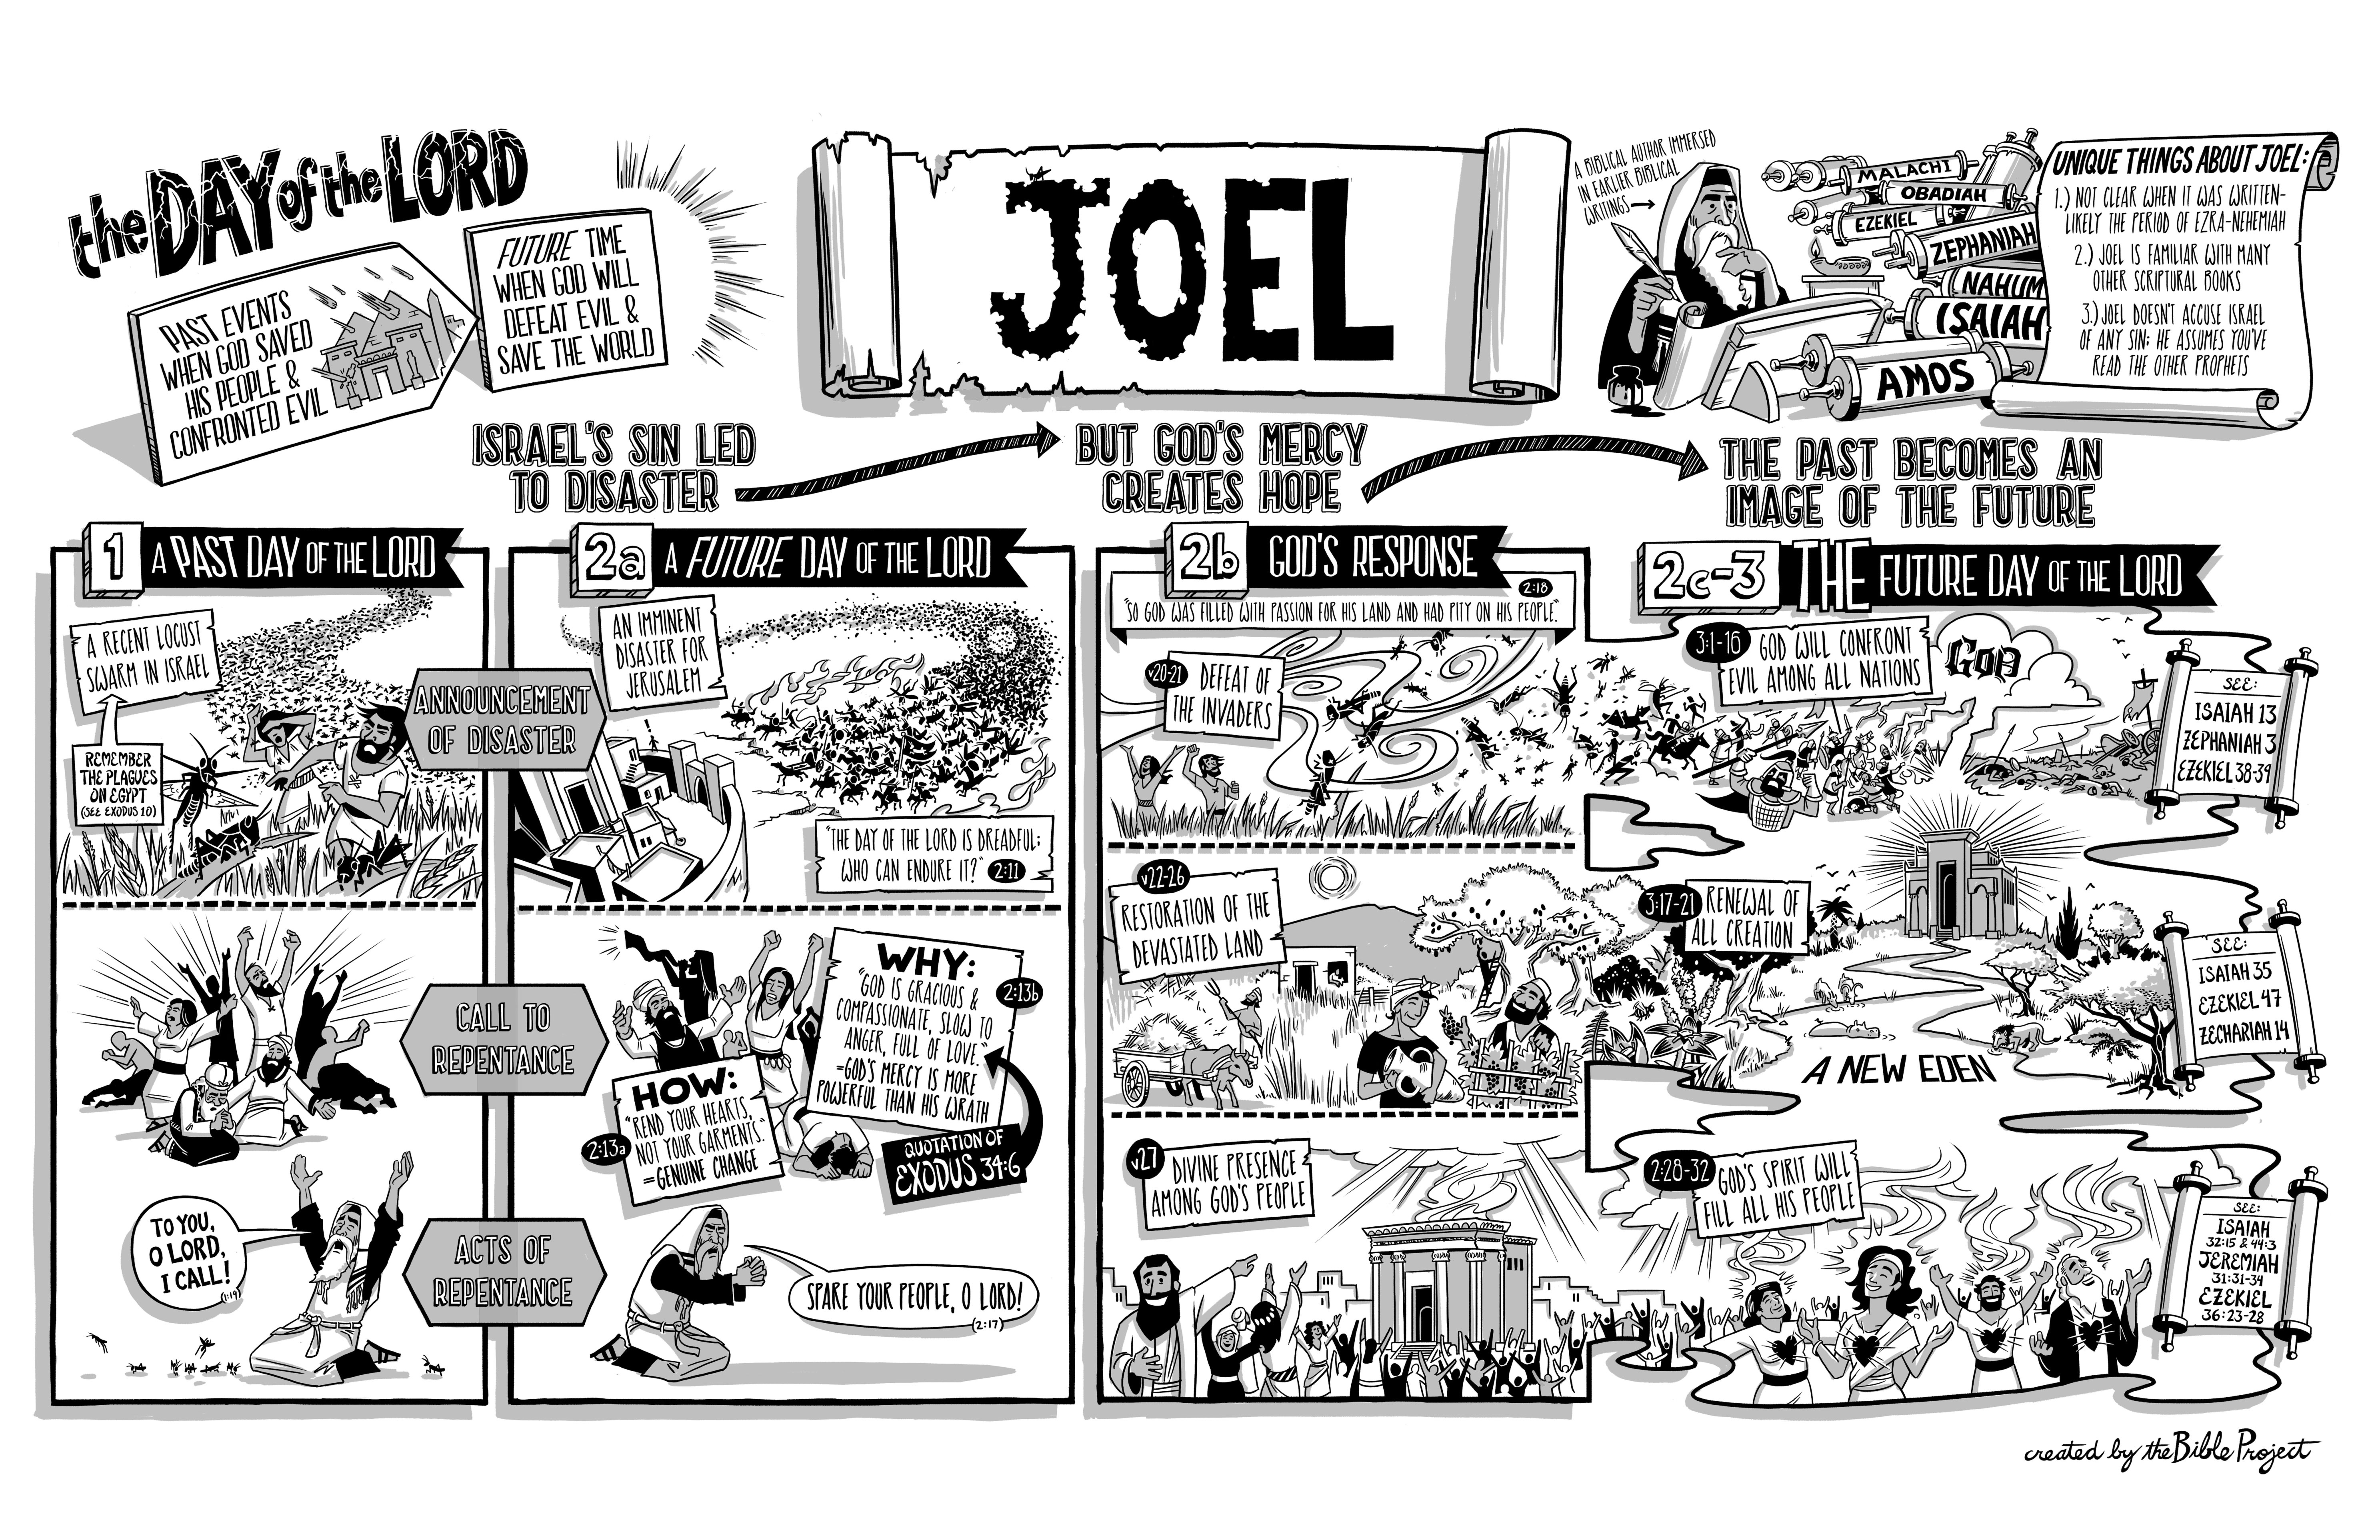 the DAY of the LORD
PAST EVENTS
WHEN GOD SAVED
HIS PEOPLE &
CONFRONTED EVIL
FUTURE TIME
WHEN GOD WILL
DEFEAT EVIL &
SAVE THE WORLD
JOEL
A BIBLICAL AUTHOR IMMERSED
IN EARLIER BIBLICAL
WRITINGS
MALACHI
OBADIAH
EZEKIEL
ZEPHANIAH
NAHUM
ISAIAH
AMOS
UNIQUE THINGS ABOUT JOEL:
1.) NOT CLEAR WHEN IT WAS WRITTEN-
LIKELY THE PERIOD OF EZRA-NEHEMIAH
2.) JOEL IS FAMILIAR WITH MANY
OTHER SCRIPTURAL BOOKS
3.) JOEL DOESN'T ACCUSE ISRAEL
OF ANY SIN; HE ASSUMES YOU'VE
READ THE OTHER PROPHETS
ISRAEL'S SIN LED
TO DISASTER
BUT GOD'S MERCY
CREATES HOPE
THE PAST BECOMES AN
IMAGE OF THE FUTURE
1 A PAST DAY OF THE LORD
A RECENT LOCUST
SWARM IN ISRAEL
REMEMBER
THE PLAGUES
ON EGYPT
(SEE EXODUS 10)
ANNOUNCEMENT
OF DISASTER
CALL TO
REPENTANCE
TO YOU,
O LORD,
I CALL!
(1:19)
ACTS OF
REPENTANCE
2a A FUTURE DAY OF THE LORD
AN IMMINENT
DISASTER FOR
JERUSALEM
"THE DAY OF THE LORD IS DREADFUL;
WHO CAN ENDURE IT?" 2:11
HOW:
"REND YOUR HEARTS,
NOT YOUR GARMENTS."
=GENUINE CHANGE
2:13a
WHY:
"GOD IS GRACIOUS &
COMPASSIONATE, SLOW TO
ANGER, FULL OF LOVE."
=GOD'S MERCY IS MORE
POWERFUL THAN HIS WRATH
2:13b
QUOTATION OF
EXODUS 34:6
SPARE YOUR PEOPLE, O LORD!
(2:17)
2b GOD'S RESPONSE
2:18
"SO GOD WAS FILLED WITH PASSION FOR HIS LAND AND HAD PITY ON HIS PEOPLE."
v20-21 DEFEAT OF
THE INVADERS
v22-26
RESTORATION OF THE
DEVASTATED LAND
v27 DIVINE PRESENCE
AMONG GOD'S PEOPLE
2c-3 THE FUTURE DAY OF THE LORD
3:1-16 GOD WILL CONFRONT
EVIL AMONG ALL NATIONS
GOD
SEE:
ISAIAH 13
ZEPHANIAH 3
EZEKIEL 38-39
3:17-21 RENEWAL OF
ALL CREATION
A NEW EDEN
SEE:
ISAIAH 35
EZEKIEL 47
ZECHARIAH 14
2:28-32 GOD'S SPIRIT WILL
FILL ALL HIS PEOPLE
SEE:
ISAIAH
32:15 & 44:3
JEREMIAH
31:31-34
EZEKIEL
36:23-28
created by the Bible Project